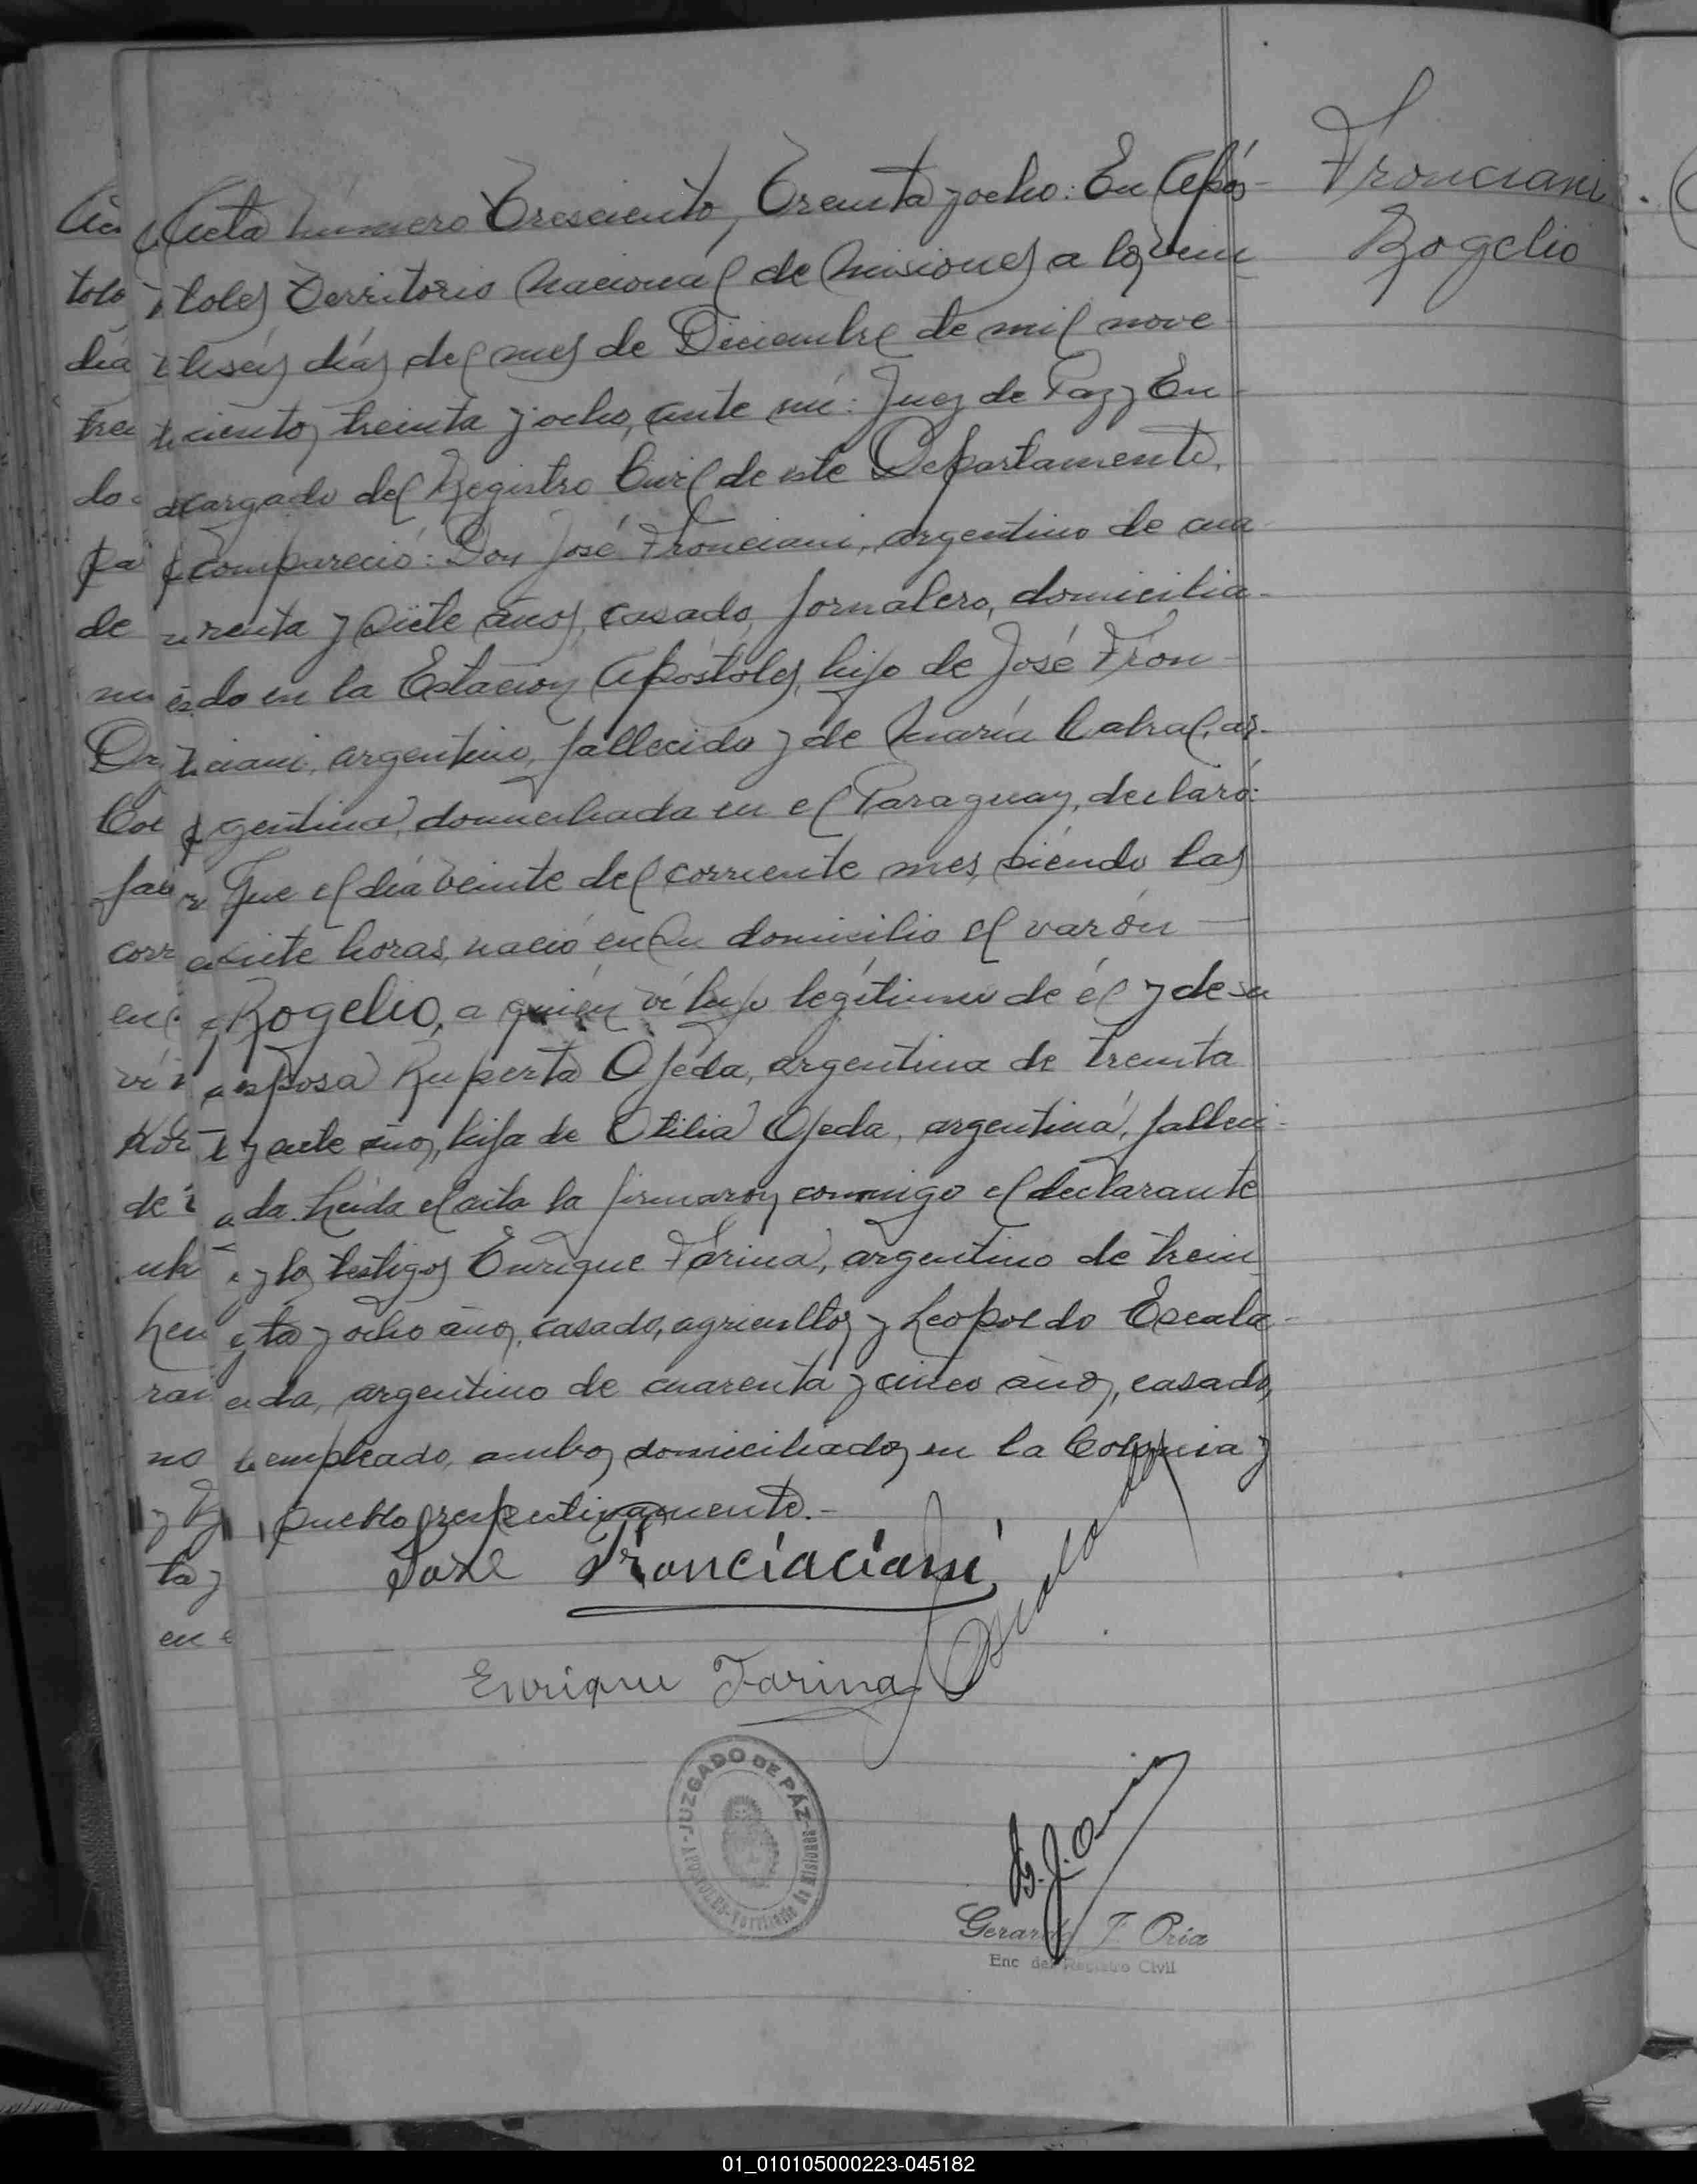 Fronciani
Rogelio
Acta número Tresciento, Treinta y ocho: En Após-
toles Territorio Nacional de Misiones a los vein
tiseis días del mes de Diciembre de mil nove
cientos treinta y ocho, ante mí: Juez de Paz y En
cargado del Registro Civil de este Departamento,
compareció: Don José Fronciani, argentino de cua
renta y siete años, casado, jornalero, domicilia-
do en la Estacion Apóstoles, hijo de José Fron
ciani, argentino, fallecido y de María Cabral, ar-
gentina, domiciliada en el Paraguay, declaró:
Que el día veinte del corriente mes, siendo las
siete horas, nació en su domicilio el varón
Rogelio, a quién ví hijo legítimo de él y de su
esposa Ruperta Ojeda, argentina de treinta
y siete años, hija de Otilia Ojeda, argentina, falleci-
da. Leída el acta la firmaron conmigo el declarante
y los testigos Enrique Farina, argentino de trein
ta y ocho años, casado, agricultor y Leopoldo Escala-
da, argentino de cuarenta y cinco años, casado,
empleado, ambos domiciliados en la Colonia y
Pueblo respectivamente.-
José Fronciaciani
Escalada
Enrique Farina
JUZGADO DE PAZ
APOSTOLES - Territorio de Misiones
Gerardo F. Oria
Enc del Registro Civil
01_010105000223-045182